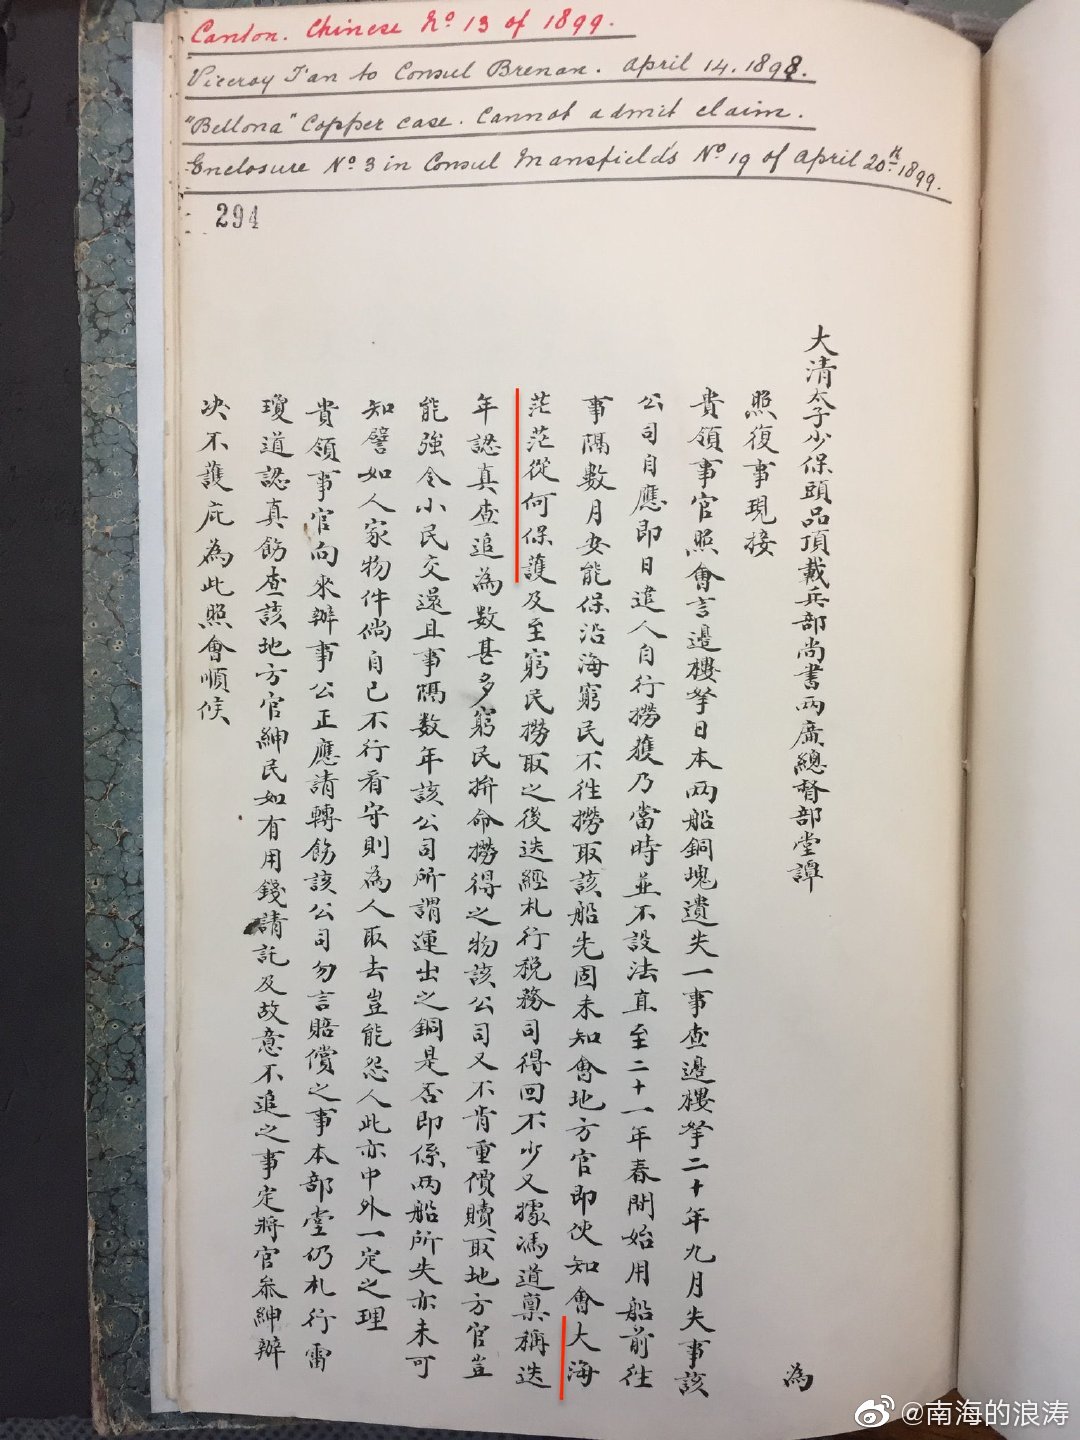 Canton. Chinese No. 13 of 1899.
Viceroy T'an to Consul Brenan. April 14. 1898.
"Bellona" Copper case. Cannot admit claim.
Enclosure No. 3 in Consul Mansfield's No. 19 of April 20th 1899.
294
大清太子少保頭品頂戴兵部尚書兩廣總督部堂譚 為
照復事現接
貴領事官照會言邊樓拏日本兩船銅塊遺失一事查邊樓拏二十年九月失事該
公司自應即日遣人自行撈獲乃當時並不設法直至二十一年春間始用船前往
事隔數月安能保沿海窮民不往撈取該船先固未知會地方官即使知會大海
茫茫從何保護及至窮民撈取之後迭經札行稅務司得回不少又據馮道稟稱迭
年認真查追為数甚多窮民拚命撈得之物該公司又不肯重價贖取地方官豈
能強令小民交還且事隔数年該公司所謂運出之銅是否即係兩船所失亦未可
知譬如人家物件倘自己不行看守則為人取去豈能怨人此亦中外一定之理
貴領事官向來辦事公正應請轉飭該公司勿言賠償之事本部堂仍札行雷
瓊道認真飭查該地方官紳民如有用錢請託及故意不追之事定將官叅紳辦
决不護庇為此照會順候
@南海的浪涛